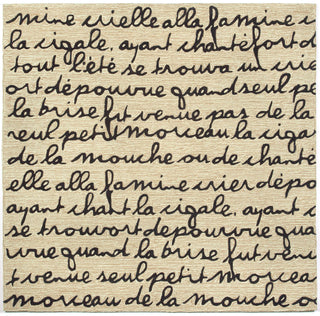 mine crielle alla famine c
la cigale, ayant chanté fort d
tout l'été se trouva un crie
ort dépourvue quand seul pe
la brise fut venue pas de la
seul petit morceau la ciga
de la mouche ou de chanté
elle alla famine crier dépo
ayant chant la cigale, ayant c
se trouvort depourvue qua
vue quand la brise fut ven
t venue seul petit morcea
morceau de la mouche o